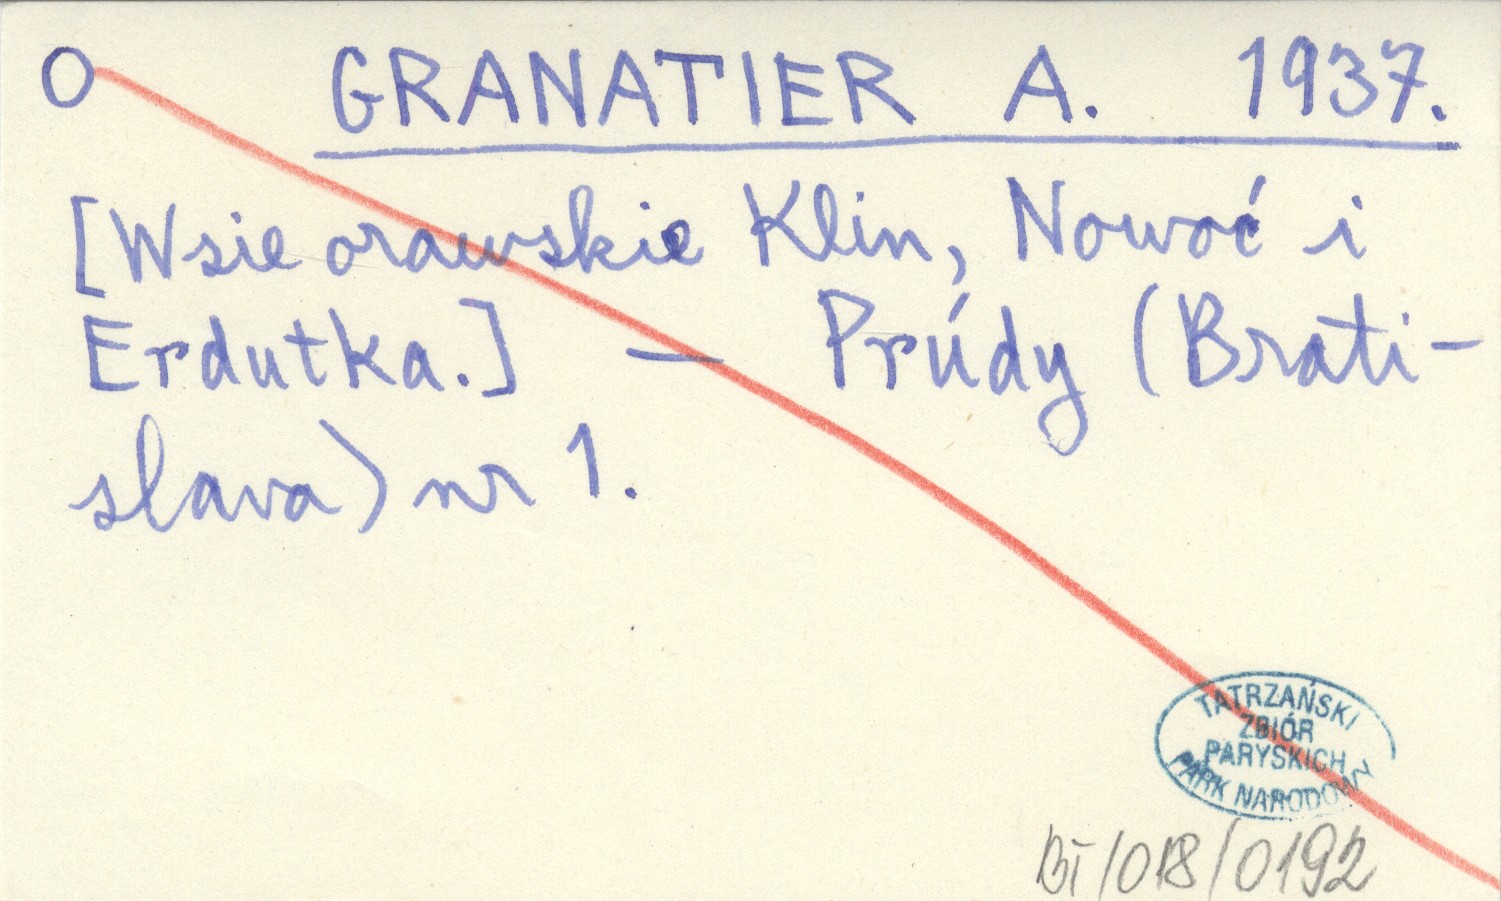 O GRANATIER A. 1937.
[Wsie orawskie Klin, Nowoć i
Erdutka.] — Prúdy (Brati-
slava) nr 1.
TATRZAŃSKI
ZBIÓR
PARYSKICH
PARK NARODOWY
BT/018/0192